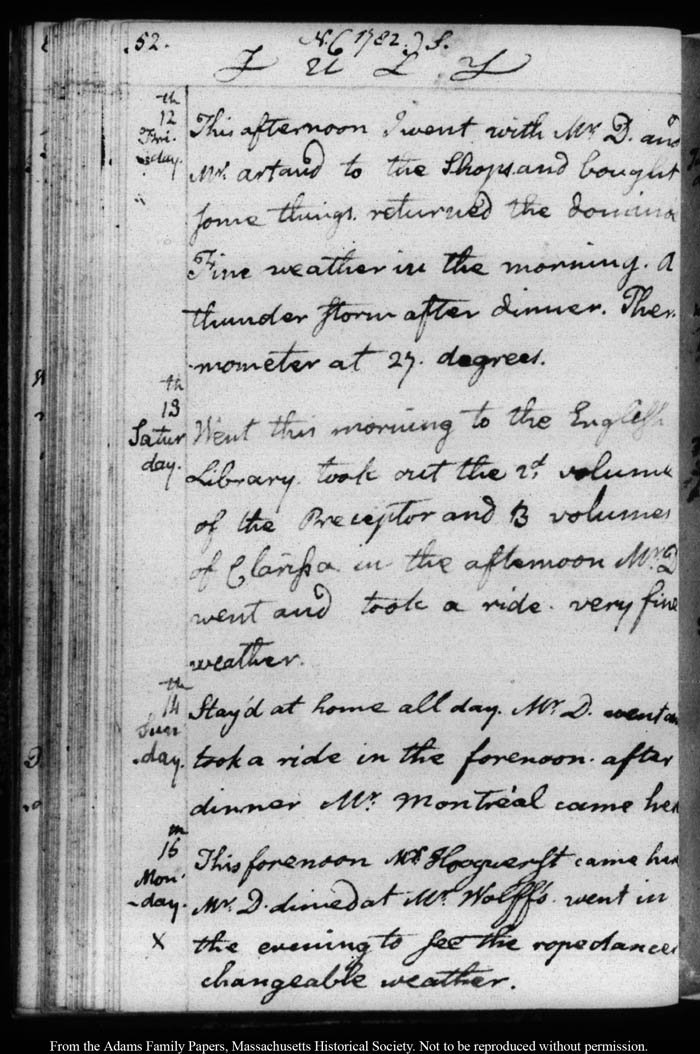 52. N.(1782.)S.
JULY
th
12
Fri.
day.
This afternoon I went with Mr. D. and
Mr. artaud to the Shops and bought
some things. returned the domino
Fine weather in the morning. A
thunder storm after dinner. Ther-
mometer at 27. degrees.
th
13
Satur
day.
Went this morning to the English
Library. took out the 2d. volume
of the Preceptor and 3 volumes
of Clarissa in the afternoon Mr. D
went and took a ride. very fine
weather.
th
14
Sun
day.
Stay'd at home all day. Mr. D. went an
took a ride in the forenoon. after
dinner Mr. Montréal came her
15
Mon
day.
X
This forenoon Mr. Hoogwerft came her
Mr. D. dined at Mr. Wolff's. went in
the evening to see the rope dancer
changeable weather.
From the Adams Family Papers, Massachusetts Historical Society. Not to be reproduced without permission.